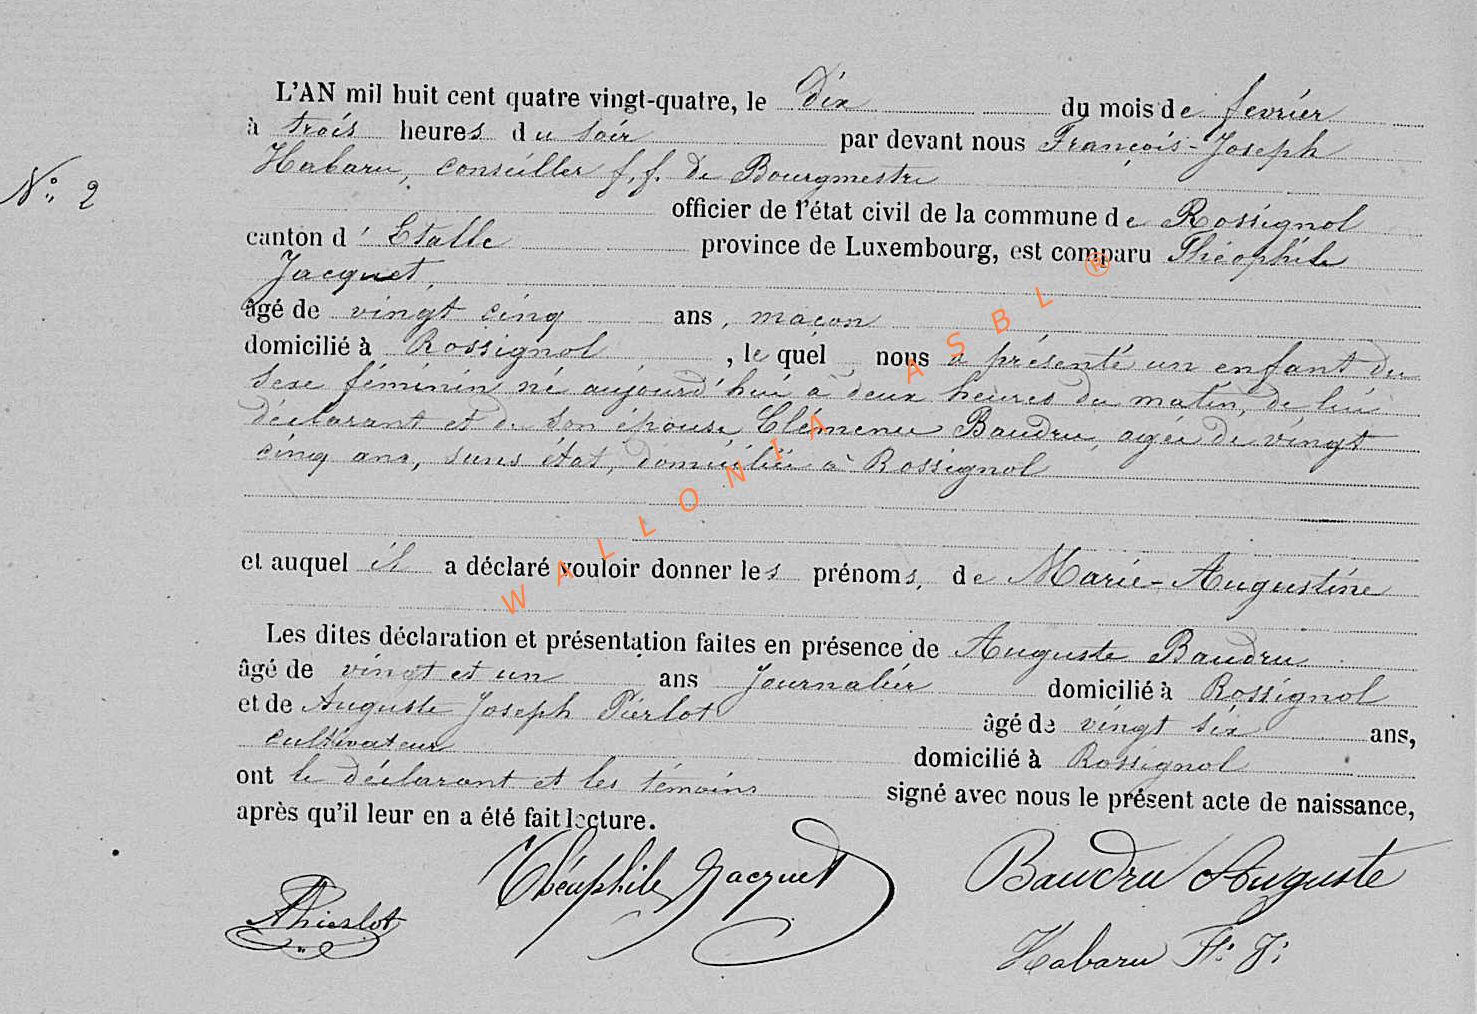 L'AN mil huit cent quatre vingt-quatre, le dix du mois de fevrier
à trois heures du soir par devant nous François-Joseph
Habaru, conseiller f.f. de Bourgmestre
N°: 2
officier de l'état civil de la commune de Rossignol
canton d' Etalle province de Luxembourg, est comparu Théophile
Jacquet,
âgé de vingt cinq ans, maçon
domicilié à Rossignol, le quel nous a présenté un enfant du
sexe féminin né aujourd'hui à deux heures du matin, de lui
déclarant et de son épouse Clémence Baudru, agée de vingt
cinq ans, sans état, domiciliée à Rossignol
et auquel il a déclaré vouloir donner les prénoms, de Marie-Augustine
Les dites déclaration et présentation faites en présence de Auguste Baudru
âgé de vingt et un ans Journalier domicilié à Rossignol
et de Auguste Joseph Pierlot âgé de vingt six ans,
cultivateur domicilié à Rossignol
ont le déclarant et les témoins signé avec nous le présent acte de naissance,
après qu'il leur en a été fait lecture.
Théophile Jacquet Baudru Auguste
Habaru F: J:
WALLONIA ASBL ®